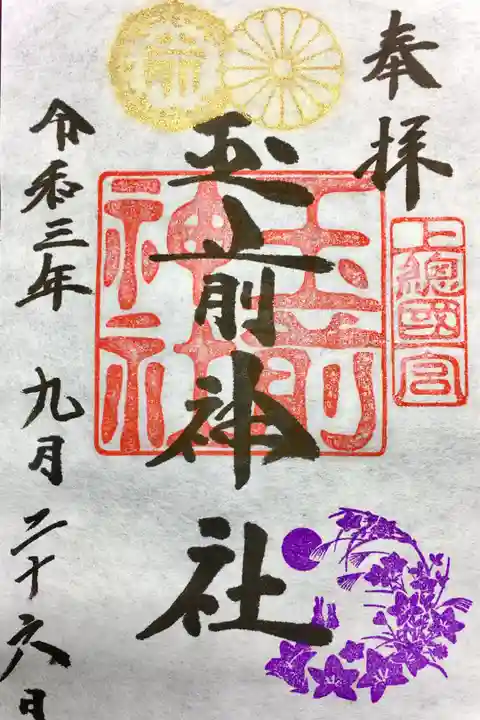 奉拝
上總國一宮
玉前神社
玉前神社
令和三年 九月二十六日